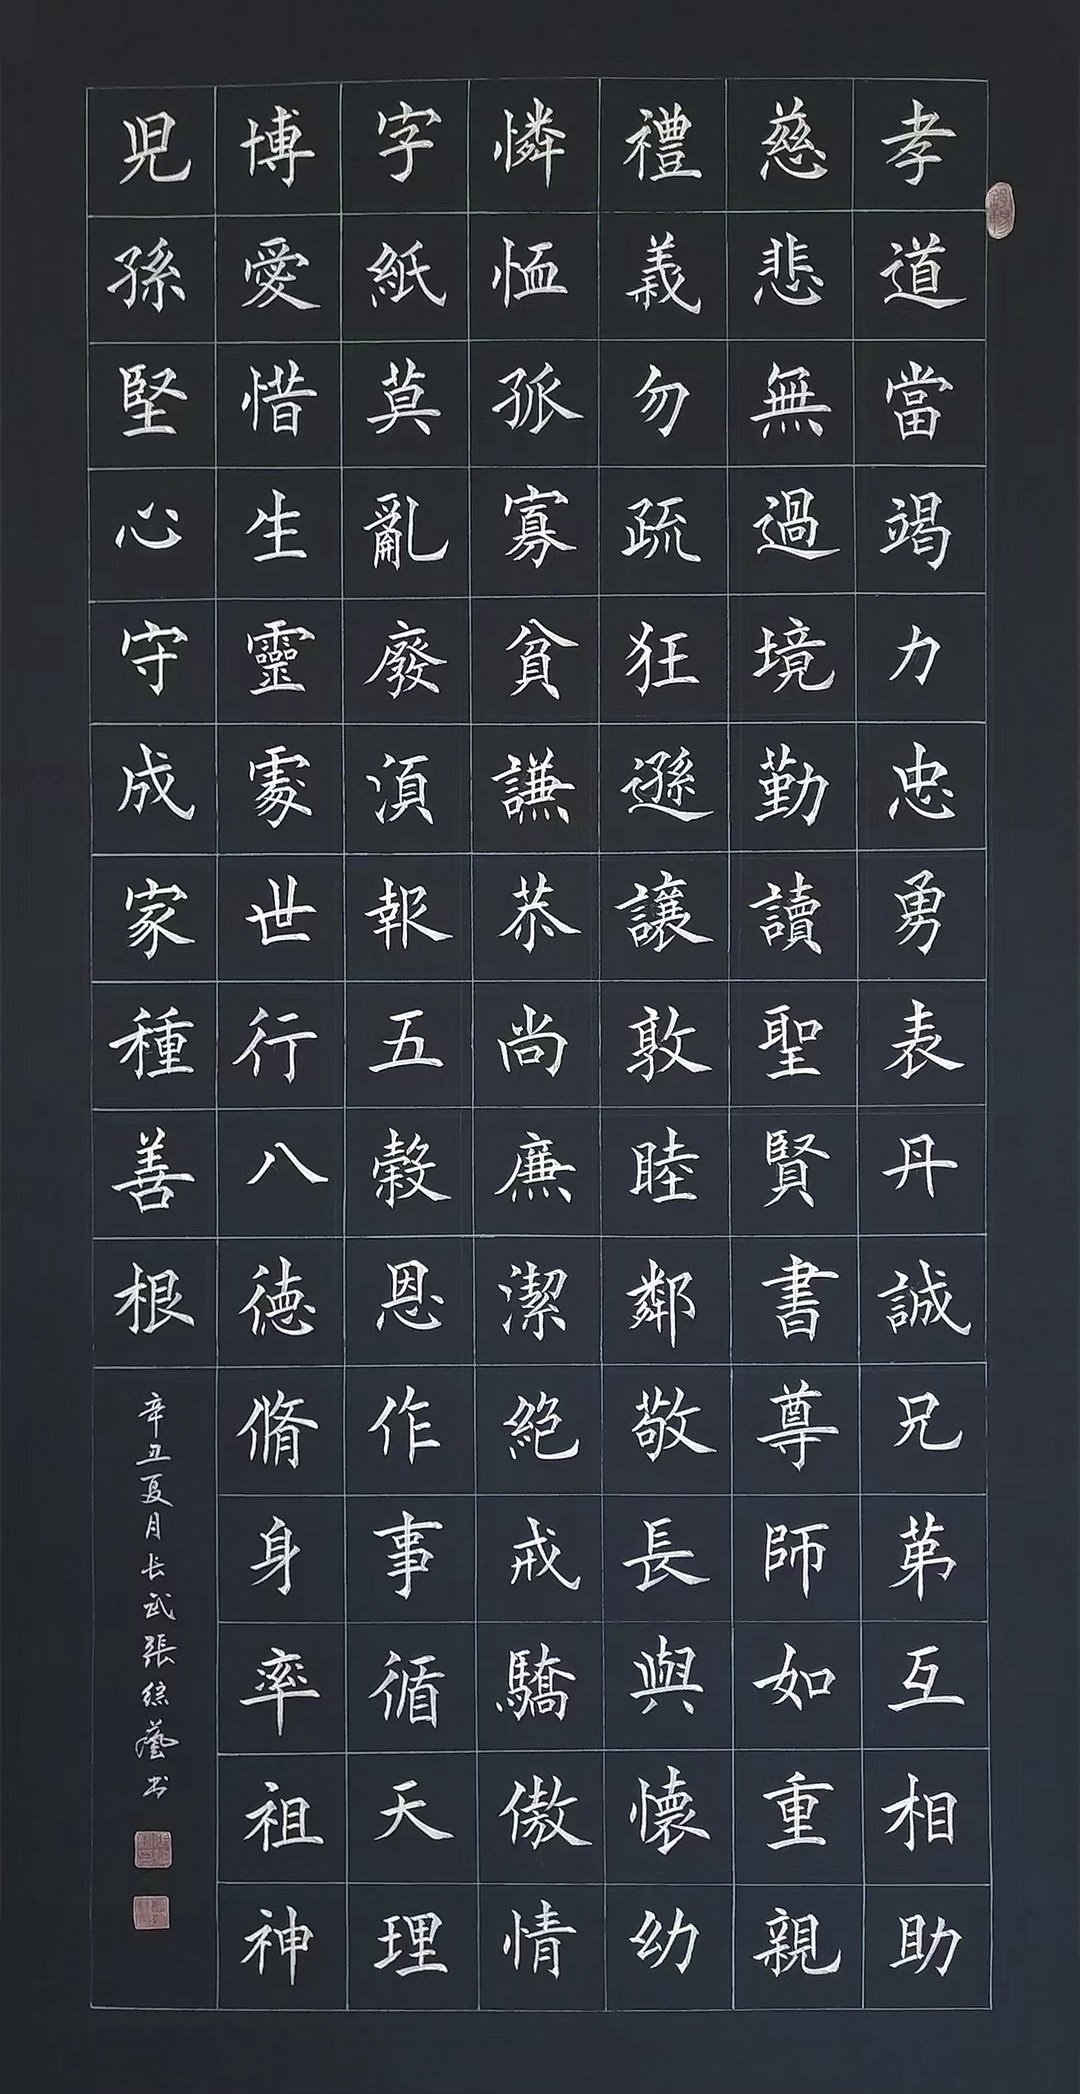 孝道當竭力忠勇表丹誠兄苐互相助
慈悲無過境勤讀聖賢書尊師如重親
禮義勿疏狂遜讓敦睦鄰敬長與懷幼
憐恤孤寡貧謙恭尚廉潔絶戒驕傲情
字紙莫亂廢湏報五穀恩作事循天理
博愛惜生靈處世行八徳脩身率祖神
児孫堅心守成家種善根
辛丑夏月长武張綜藝书